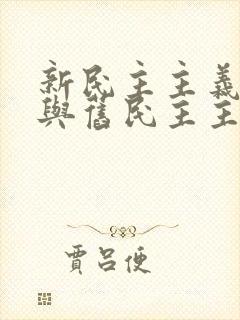 新民主主義
與舊民主主
賈呂便